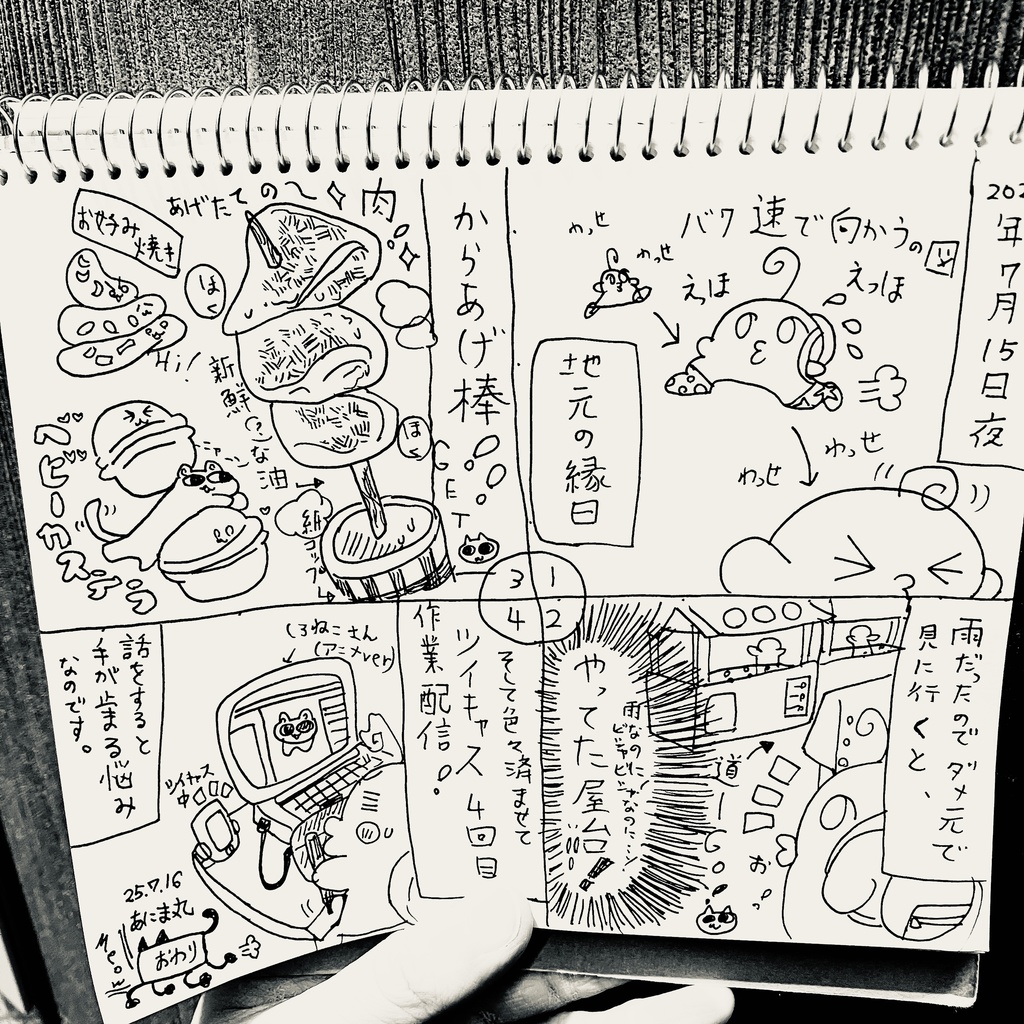 202
年7月15日夜
バク速で向かうの図
わっせ
わっせ
えっほ
えっほ
わっせ
わっせ
地元の縁日
1
2
3
4
雨だったのでダメ元で
見に行くと、
お
道
GO
雨なのに
ビシャビシャなのに〜ン
やってた屋台
!!!
からあげ棒
GET
肉
あげたての〜
ほく
ほく
新鮮(?)な油
紙コップ
お好み
焼き
Hi!
ジャーン
ベビーカステラ
そして色々済ませて
ツイキャス4回目
作業配信!
しろねこさん
(アニメver)
ツイキャス
中
話をすると
手が止まる悩み
なのです。
25.7.16
あにま丸
おわり
Meow